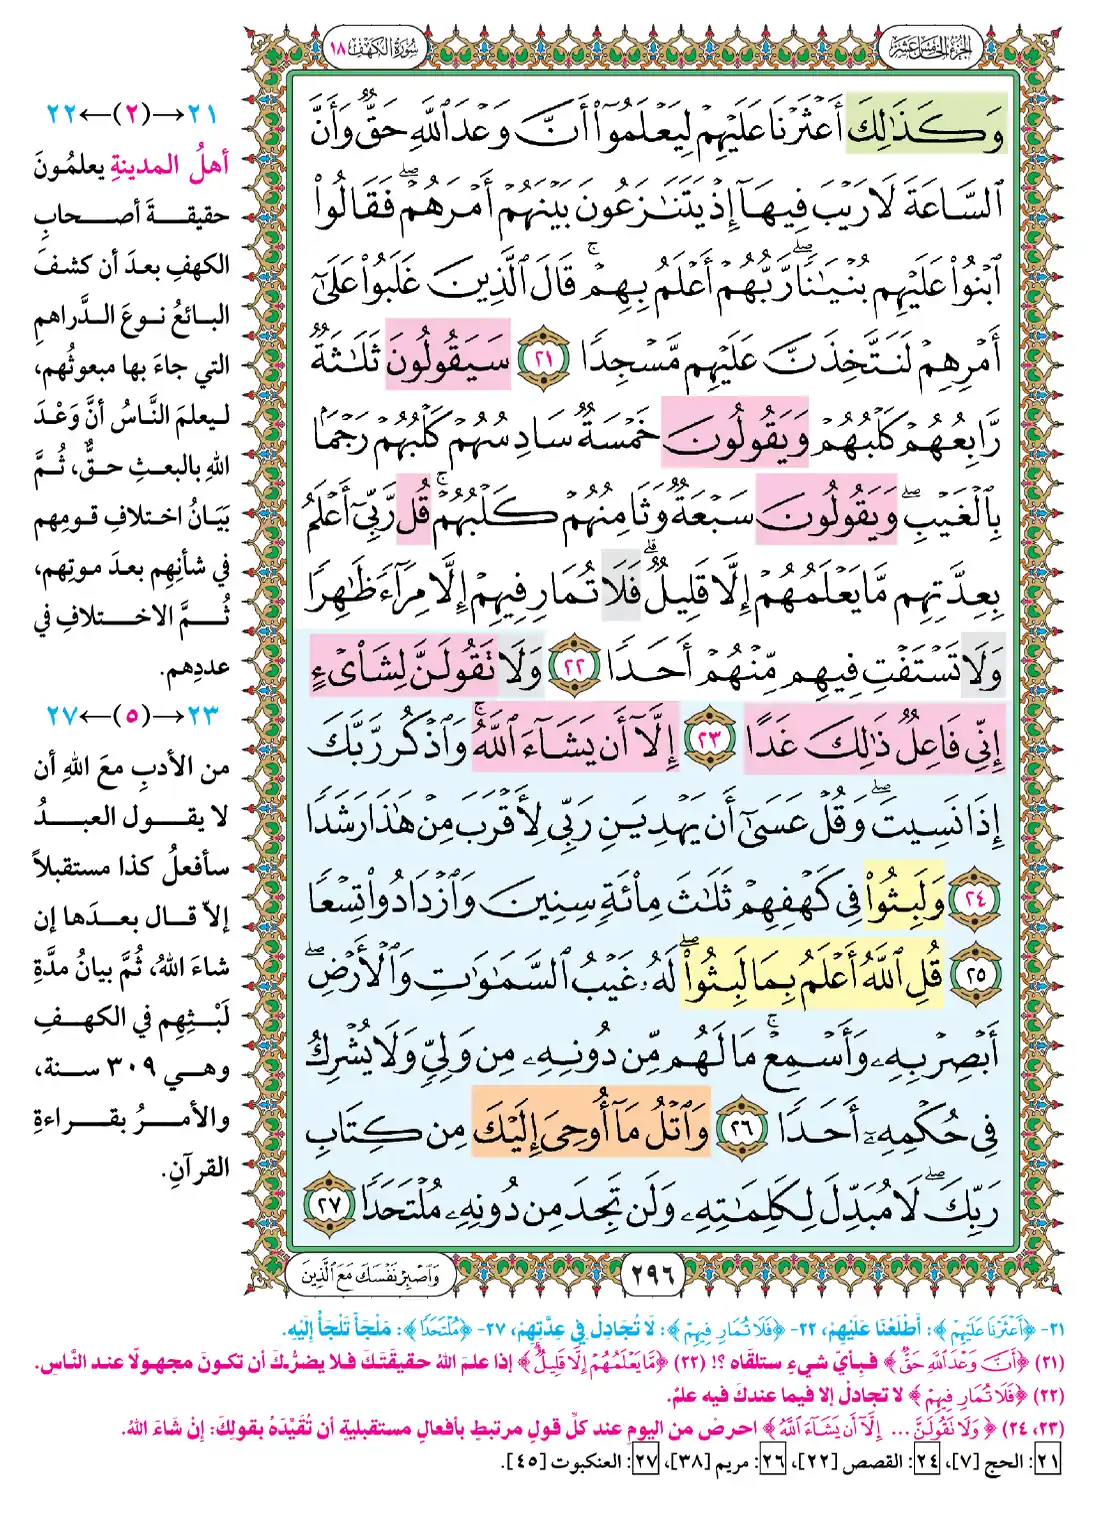 الجزء الخامس عشر
سورة الكهف ١٨
وَكَذَٰلِكَ أَعْثَرْنَا عَلَيْهِمْ لِيَعْلَمُوٓا۟ أَنَّ وَعْدَ ٱللَّهِ حَقٌّ وَأَنَّ
ٱلسَّاعَةَ لَا رَيْبَ فِيهَآ إِذْ يَتَنَٰزَعُونَ بَيْنَهُمْ أَمْرَهُمْ ۖ فَقَالُوا۟
ٱبْنُوا۟ عَلَيْهِم بُنْيَٰنًا ۖ رَّبُّهُمْ أَعْلَمُ بِهِمْ ۚ قَالَ ٱلَّذِينَ غَلَبُوا۟ عَلَىٰٓ
أَمْرِهِمْ لَنَتَّخِذَنَّ عَلَيْهِم مَّسْجِدًا ٢١ سَيَقُولُونَ ثَلَٰثَةٌ
رَّابِعُهُمْ كَلْبُهُمْ وَيَقُولُونَ خَمْسَةٌ سَادِسُهُمْ كَلْبُهُمْ رَجْمًۢا
بِٱلْغَيْبِ ۖ وَيَقُولُونَ سَبْعَةٌ وَثَامِنُهُمْ كَلْبُهُمْ ۚ قُل رَّبِّىٓ أَعْلَمُ
بِعِدَّتِهِم مَّا يَعْلَمُهُمْ إِلَّا قَلِيلٌ ۗ فَلَا تُمَارِ فِيهِمْ إِلَّا مِرَآءً ظَٰهِرًا
وَلَا تَسْتَفْتِ فِيهِم مِّنْهُمْ أَحَدًا ٢٢ وَلَا تَقُولَنَّ لِشَا۟ىْءٍ
إِنِّى فَاعِلٌ ذَٰلِكَ غَدًا ٢٣ إِلَّآ أَن يَشَآءَ ٱللَّهُ ۚ وَٱذْكُر رَّبَّكَ
إِذَا نَسِيتَ وَقُلْ عَسَىٰٓ أَن يَهْدِيَنِ رَبِّى لِأَقْرَبَ مِنْ هَٰذَا رَشَدًا
٢٤ وَلَبِثُوا۟ فِى كَهْفِهِمْ ثَلَٰثَ مِا۟ئَةٍ سِنِينَ وَٱزْدَادُوا۟ تِسْعًا
٢٥ قُلِ ٱللَّهُ أَعْلَمُ بِمَا لَبِثُوا۟ ۖ لَهُۥ غَيْبُ ٱلسَّمَٰوَٰتِ وَٱلْأَرْضِ ۖ
أَبْصِرْ بِهِۦ وَأَسْمِعْ ۚ مَا لَهُم مِّن دُونِهِۦ مِن وَلِىٍّ وَلَا يُشْرِكُ
فِى حُكْمِهِۦٓ أَحَدًا ٢٦ وَٱتْلُ مَآ أُوحِىَ إِلَيْكَ مِن كِتَابِ
رَبِّكَ ۖ لَا مُبَدِّلَ لِكَلِمَٰتِهِۦ وَلَن تَجِدَ مِن دُونِهِۦ مُلْتَحَدًا ٢٧
٢٩٦
وَٱصْبِرْ نَفْسَكَ مَعَ ٱلَّذِينَ
٢١→(٢)←٢٢
أهلُ المدينةِ يعلمُونَ
حقيقةَ أصحابِ
الكهفِ بعدَ أن كشفَ
البائعُ نوعَ الدَّراهمِ
التي جاءَ بها مبعوثُهم،
ليعلمَ النَّاسُ أنَّ وَعْدَ
اللهِ بالبعثِ حقٌّ، ثُمَّ
بَيَانُ اختلافِ قومِهم
في شأنِهم بعدَ موتِهم،
ثُمَّ الاختلافِ في
عددِهم.
٢٣→(٥)←٢٧
من الأدبِ معَ اللهِ أن
لا يقول العبدُ
سأفعلُ كذا مستقبلاً
إلاّ قال بعدَها إن
شاءَ اللهُ، ثُمَّ بيانُ مدَّةِ
لَبْثِهِم في الكهفِ
وهي ٣٠٩ سنة،
والأمرُ بقراءةِ
القرآنِ.
٢١- ﴿أَعْثَرْنَا عَلَيْهِمْ﴾: أَطْلَعْنَا عَلَيْهِمْ، ٢٢- ﴿فَلَا تُمَارِ فِيهِمْ﴾: لَا تُجَادِلْ فِي عِدَّتِهِمْ، ٢٧- ﴿مُلْتَحَدًا﴾: مَلْجَأً تَلْجَأُ إِلَيْهِ.
(٢١) ﴿أَنَّ وَعْدَ ٱللَّهِ حَقٌّ﴾ فبأيِّ شيءٍ ستلقَاه ؟! (٢٢) ﴿مَّا يَعْلَمُهُمْ إِلَّا قَلِيلٌ﴾ إذا علمَ اللهُ حقيقَتَكَ فلا يضرُّكَ أن تكونَ مجهولًا عند النَّاسِ.
(٢٢) ﴿فَلَا تُمَارِ فِيهِمْ﴾ لا تجادلْ إلا فيما عندكَ فيه علمٌ.
(٢٣، ٢٤) ﴿وَلَا تَقُولَنَّ ... إِلَّآ أَن يَشَآءَ ٱللَّهُ﴾ احرصْ من اليومِ عند كلِّ قولٍ مرتبطٍ بأفعالٍ مستقبليةٍ أن تُقَيِّدَهُ بقولِكَ: إنْ شَاءَ اللهُ.
٢١: الحج [٧]، ٢٤: القصص [٢٢]، ٢٦: مريم [٣٨]، ٢٧: العنكبوت [٤٥].